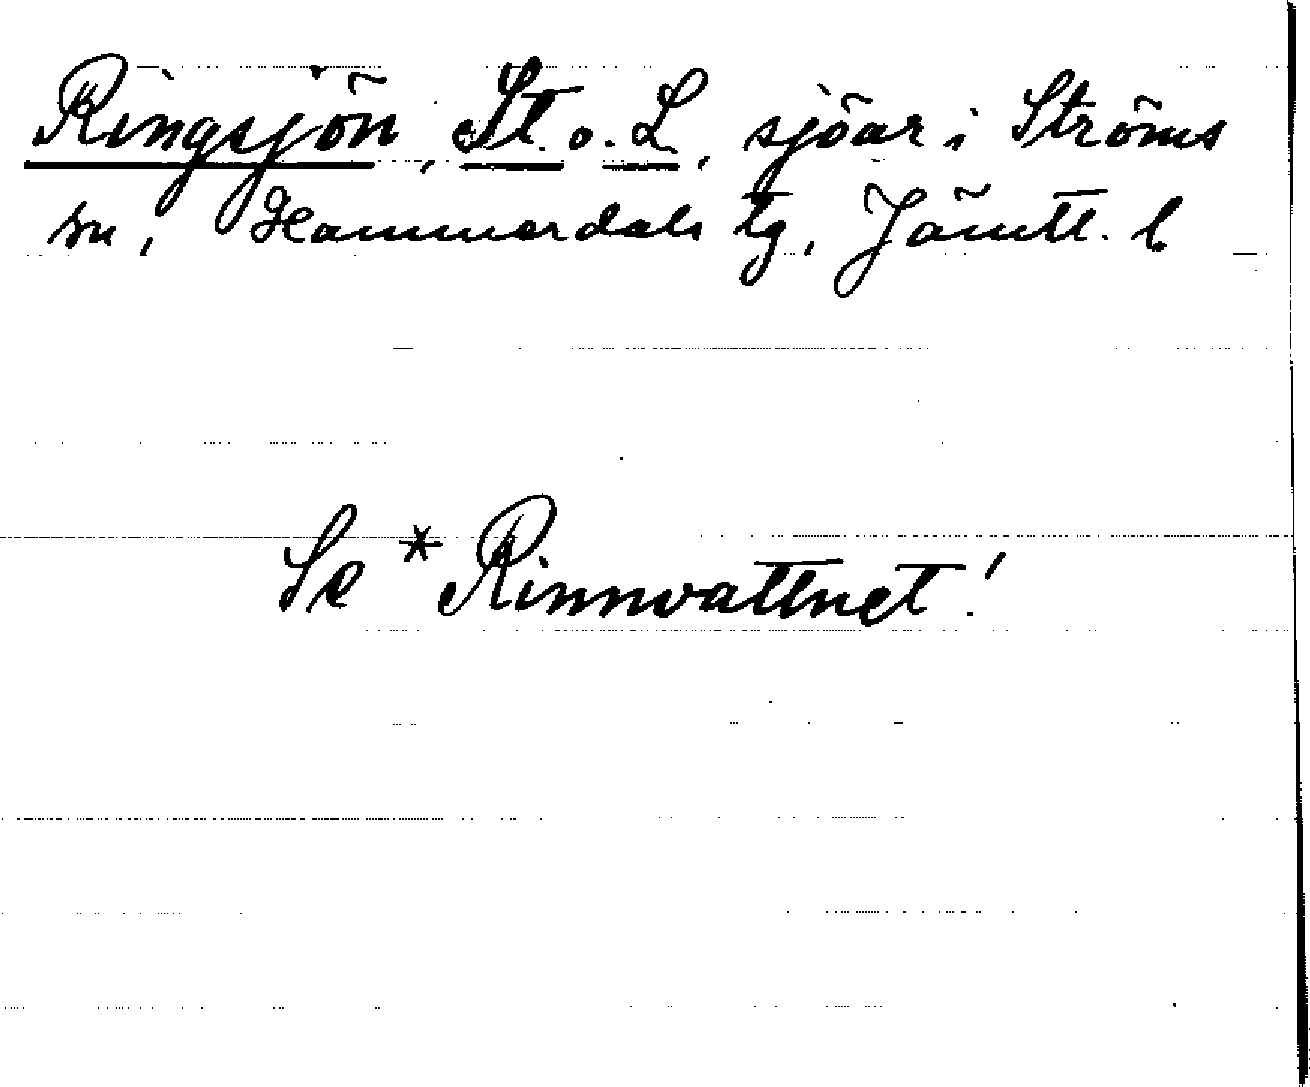 Ringsjön, St. o. L., sjöar i Ströms
sn, Hammerdals tg, Jämtl. l.
Se *Rinnvattnet!